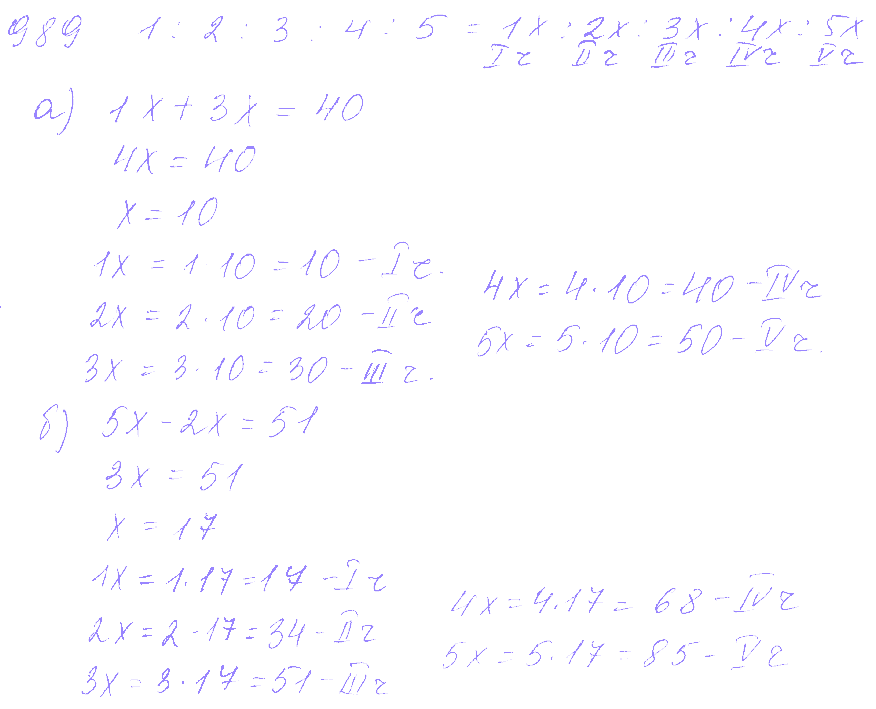 989 1 : 2 : 3 : 4 : 5 = 1x : 2x : 3x : 4x : 5x
I ч II ч III ч IV ч V ч
а) 1x + 3x = 40
4x = 40
x = 10
1x = 1 10 = 10 - I ч.
2x = 2 · 10 = 20 - II ч
3x = 3 · 10 = 30 - III ч.
4x = 4 · 10 = 40 - IV ч
5x = 5 · 10 = 50 - V ч.
б) 5x - 2x = 51
3x = 51
x = 17
1x = 1 · 17 = 17 - I ч
2x = 2 · 17 = 34 - II ч
3x = 3 · 17 = 51 - III ч
4x = 4 · 17 = 68 - IV ч
5x = 5 · 17 = 85 - V ч